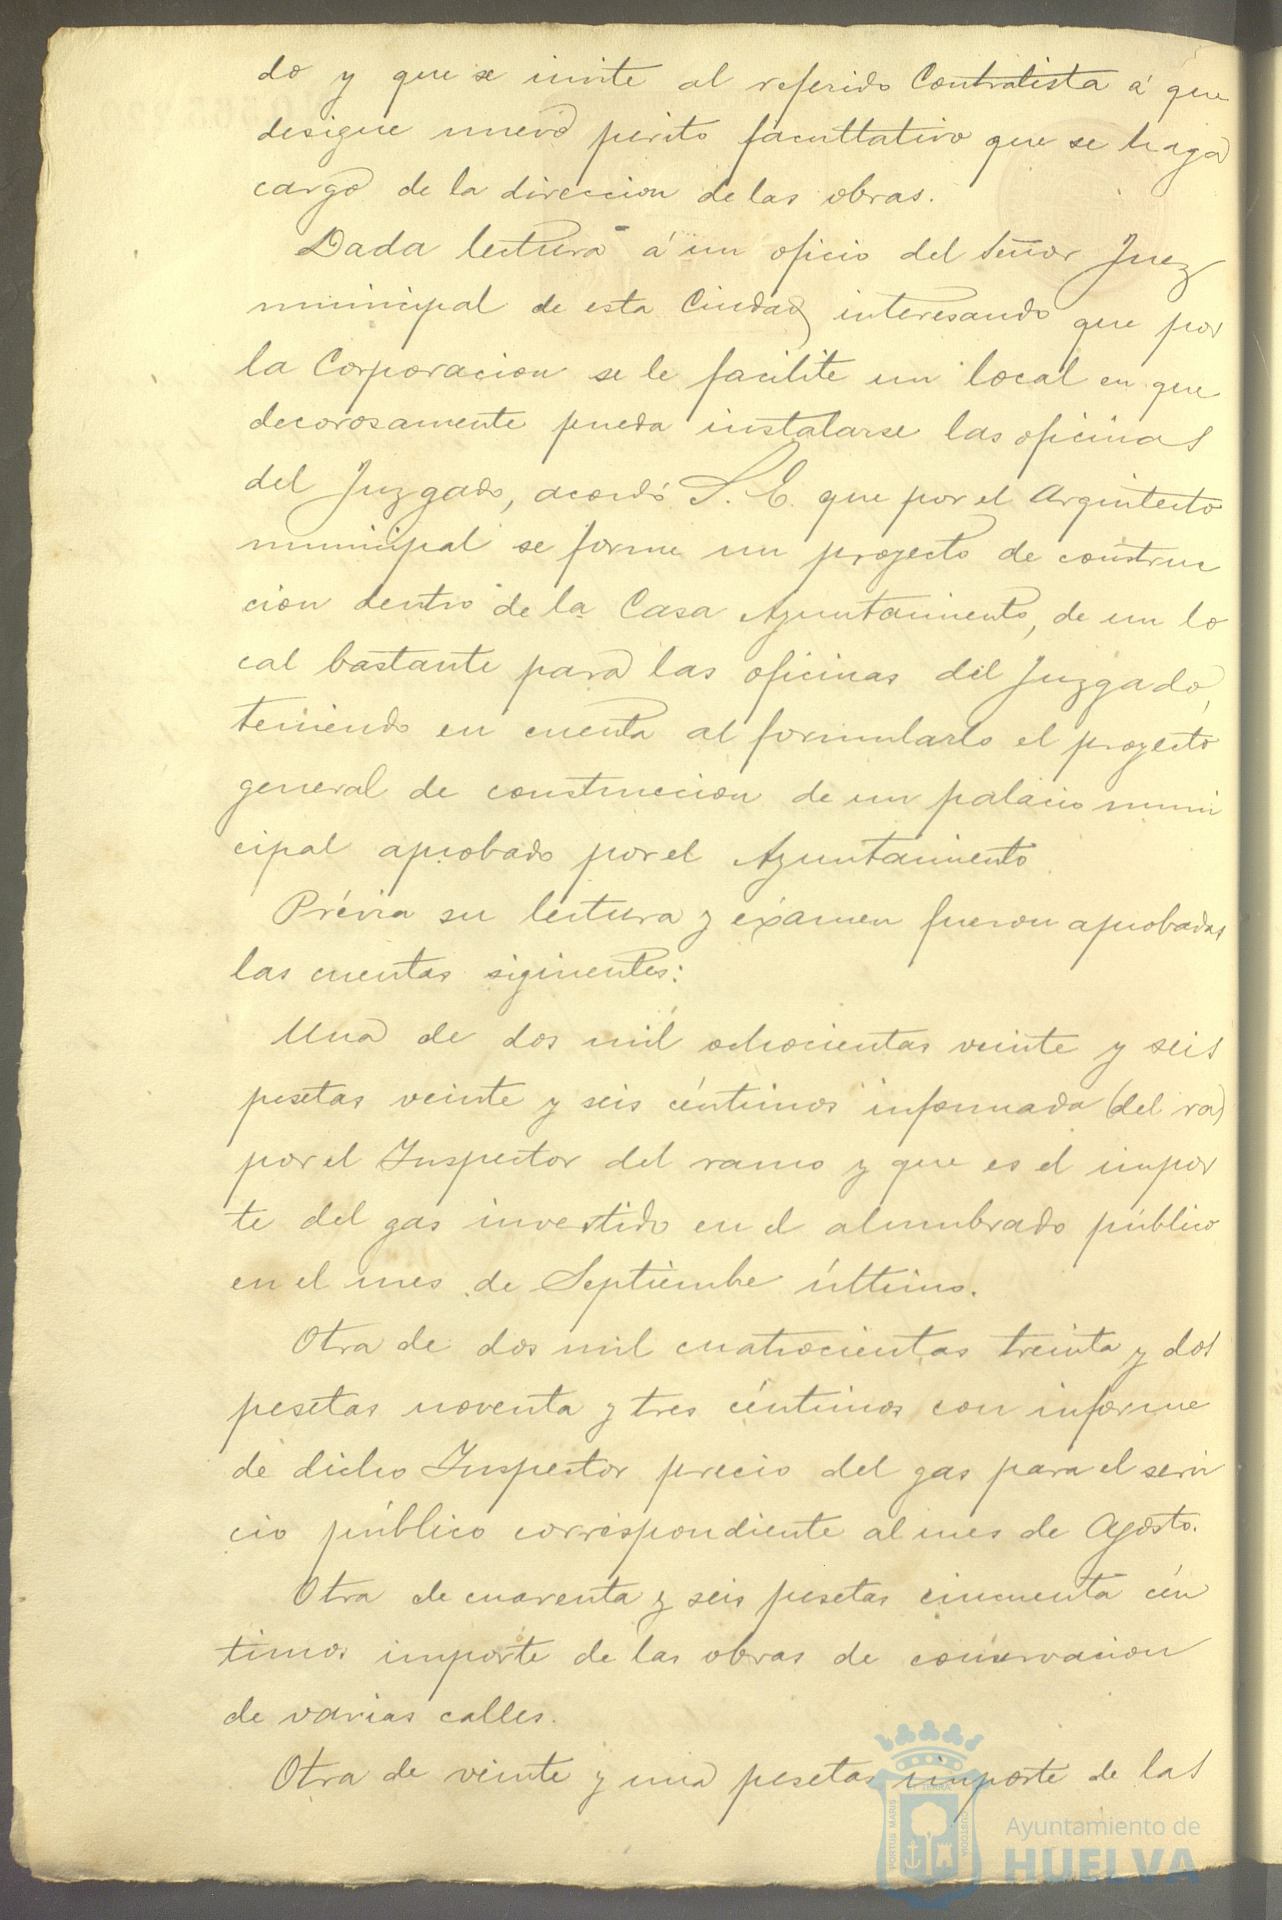 do y que se invite al referido Contratista á que
designe nuevo perito facultativo que se haga
cargo de la direccion de las obras.
Dada lectura á un oficio del Señor Juez
municipal de esta Ciudad interesando que por
la Corporacion se le facilite un local en que
decorosamente pueda instalarse las oficinas
del Juzgado, acordó S. E. que por el Arquitecto
municipal se forme un proyecto de construc
cion dentro de la Casa Ayuntamiento, de un lo
cal bastante para las oficinas del Juzgado,
teniendo en cuenta al formularlo el proyecto
general de construccion de un palacio muni
cipal aprobado por el Ayuntamiento
Prévia su lectura y éxamen fueron aprobadas
las cuentas siguientes:
Una de dos mil ochocientas veinte y seis
pesetas veinte y seis céntimos informada (del ra)
por el Inspector del ramo y que es el impor
te del gas invertido en el alumbrado público
en el mes de Septiembre último.
Otra de dos mil cuatrocientas treinta y dos
pesetas noventa y tres céntimos con informe
de dicho Inspector precio del gas para el servi
cio público correspondiente al mes de Agosto.
Otra de cuarenta y seis pesetas cincuenta cén
timos importe de las obras de conservacion
de varias calles.
Otra de veinte y una pesetas importe de las
PORTUS MARIS ET TERRAE CUSTODIA
Ayuntamiento de
HUELVA